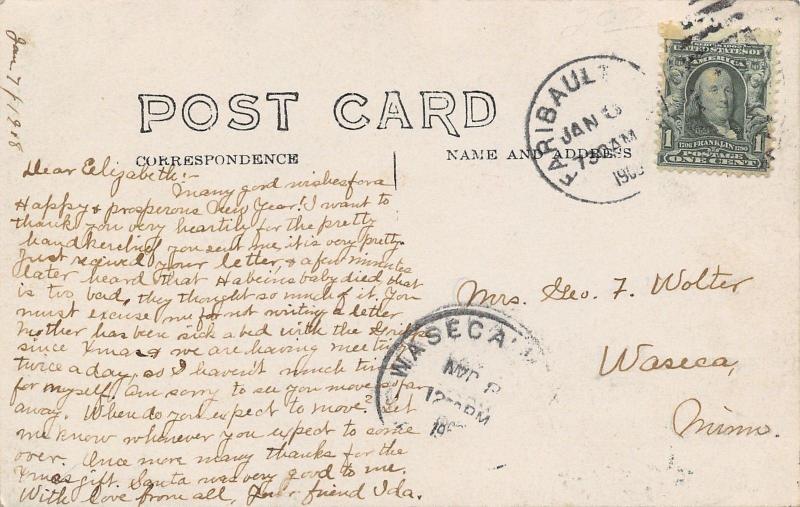 Jan. 7/1908
POST CARD
CORRESPONDENCE
NAME AND ADDRESS
FARIBAULT
JAN 8
730AM
190
SERIES 1902
UNITED STATES OF
AMERICA
1 1706 FRANKLIN 1790 1
POSTAGE
ONE CENT
Dear Elizabeth:-
Many good wishes for a
Happy & prosperous New Year! I want to
thank you very heartily for the pretty
handkerchief you sent me, it is very pretty.
Just received your letter, & a few minutes
later heard that Habeins baby died, that
is too bad, they thought so much of it. You
must excuse me for not writing a letter
Mother has been sick abed with the Grippe
since Xmas & we are having meeting
twice a day, so I haven't much time
for myself. Am sorry to see you move so far
away. When do you expect to move? Let
me know whenever you expect to come
over. Once more many thanks for the
Xmas gift. Santa was very good to me.
With Love from all, Your friend Ida.
Mrs. Geo. F. Wolter
Waseca,
Minn.
WASECA
8
PM
190